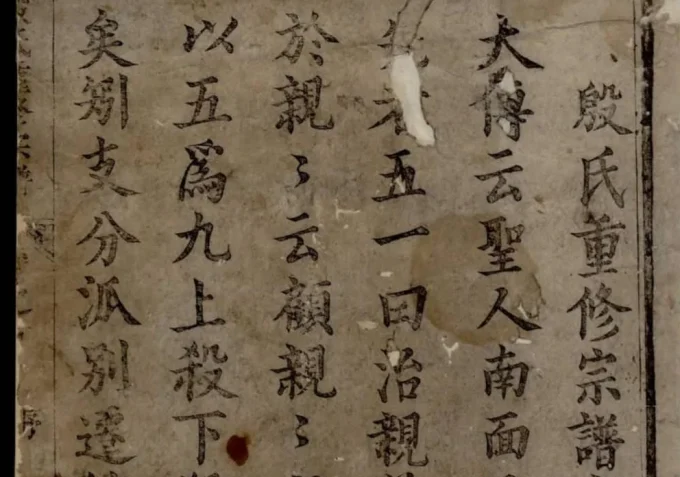 殷氏重修宗譜
大傳云聖人南面
者五一曰治親
於親〻云顧親〻
以五爲九上殺下
矣矧支分派別遷